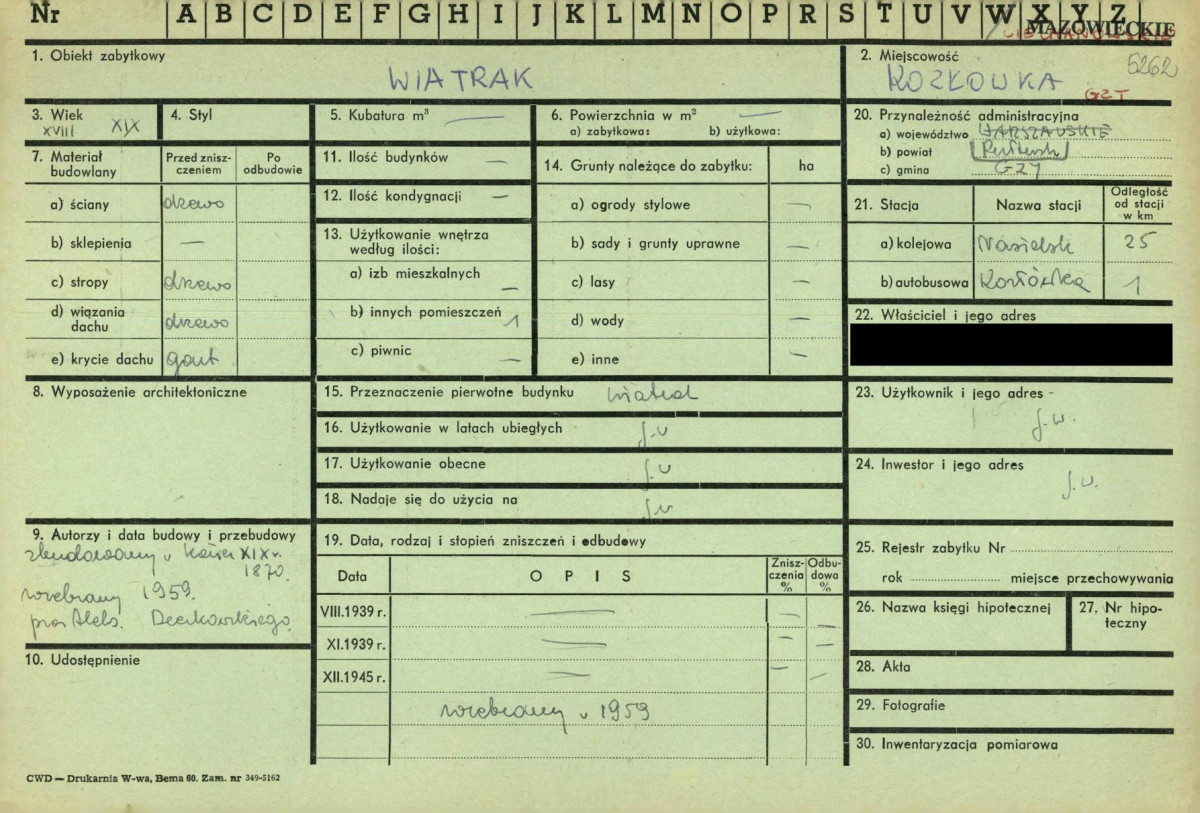 Nr A B C D E F G H I J K L M N O P R S T U V W X Y Z
MAZOWIECKIE
1. Obiekt zabytkowy
WIATRAK
2. Miejscowość
KOZŁÓWKA
5262
GZY
3. Wiek
XVIII XIX
4. Styl
5. Kubatura m³ —
6. Powierzchnia w m² —
a) zabytkowa: b) użytkowa:
20. Przynależność administracyjna
a) województwo WARSZAWSKIE
b) powiat Pułtusk
c) gmina GZY
7. Materiał budowlany
Przed znisz-
czeniem
Po
odbudowie
a) ściany drzewo
b) sklepienia —
c) stropy drzewo
d) wiązania
dachu drzewo
e) krycie dachu gont
11. Ilość budynków —
12. Ilość kondygnacji —
13. Użytkowanie wnętrza
według ilości:
a) izb mieszkalnych —
b) innych pomieszczeń 1
c) piwnic —
14. Grunty należące do zabytku: ha
a) ogrody stylowe —
b) sady i grunty uprawne —
c) lasy —
d) wody —
e) inne —
21. Stacja Nazwa stacji
Odległość
od stacji
w km
a) kolejowa Nasielsk 25
b) autobusowa Kozłówka 1
22. Właściciel i jego adres
8. Wyposażenie architektoniczne
15. Przeznaczenie pierwotne budynku wiatrak
16. Użytkowanie w latach ubiegłych j.w
17. Użytkowanie obecne j.w
18. Nadaje się do użycia na j.w
23. Użytkownik i jego adres
j.w.
24. Inwestor i jego adres
j.w.
9. Autorzy i data budowy i przebudowy
zbudowany w końcu XIX w.
1870.
rozebrany 1959.
przez Aleks.
10. Udostępnienie
19. Data, rodzaj i stopień zniszczeń i odbudowy
Data OPIS
Znisz-
czenia
%
Odbu-
dowa
%
VIII.1939 r. — — —
XI.1939 r. — — —
XII.1945 r. — — —
rozebrany w 1959
25. Rejestr zabytku Nr
rok miejsce przechowywania
26. Nazwa księgi hipotecznej
27. Nr hipo-
teczny
28. Akta
29. Fotografie
30. Inwentaryzacja pomiarowa
CWD — Drukarnia W-wa, Bema 60. Zam. nr 349-5162